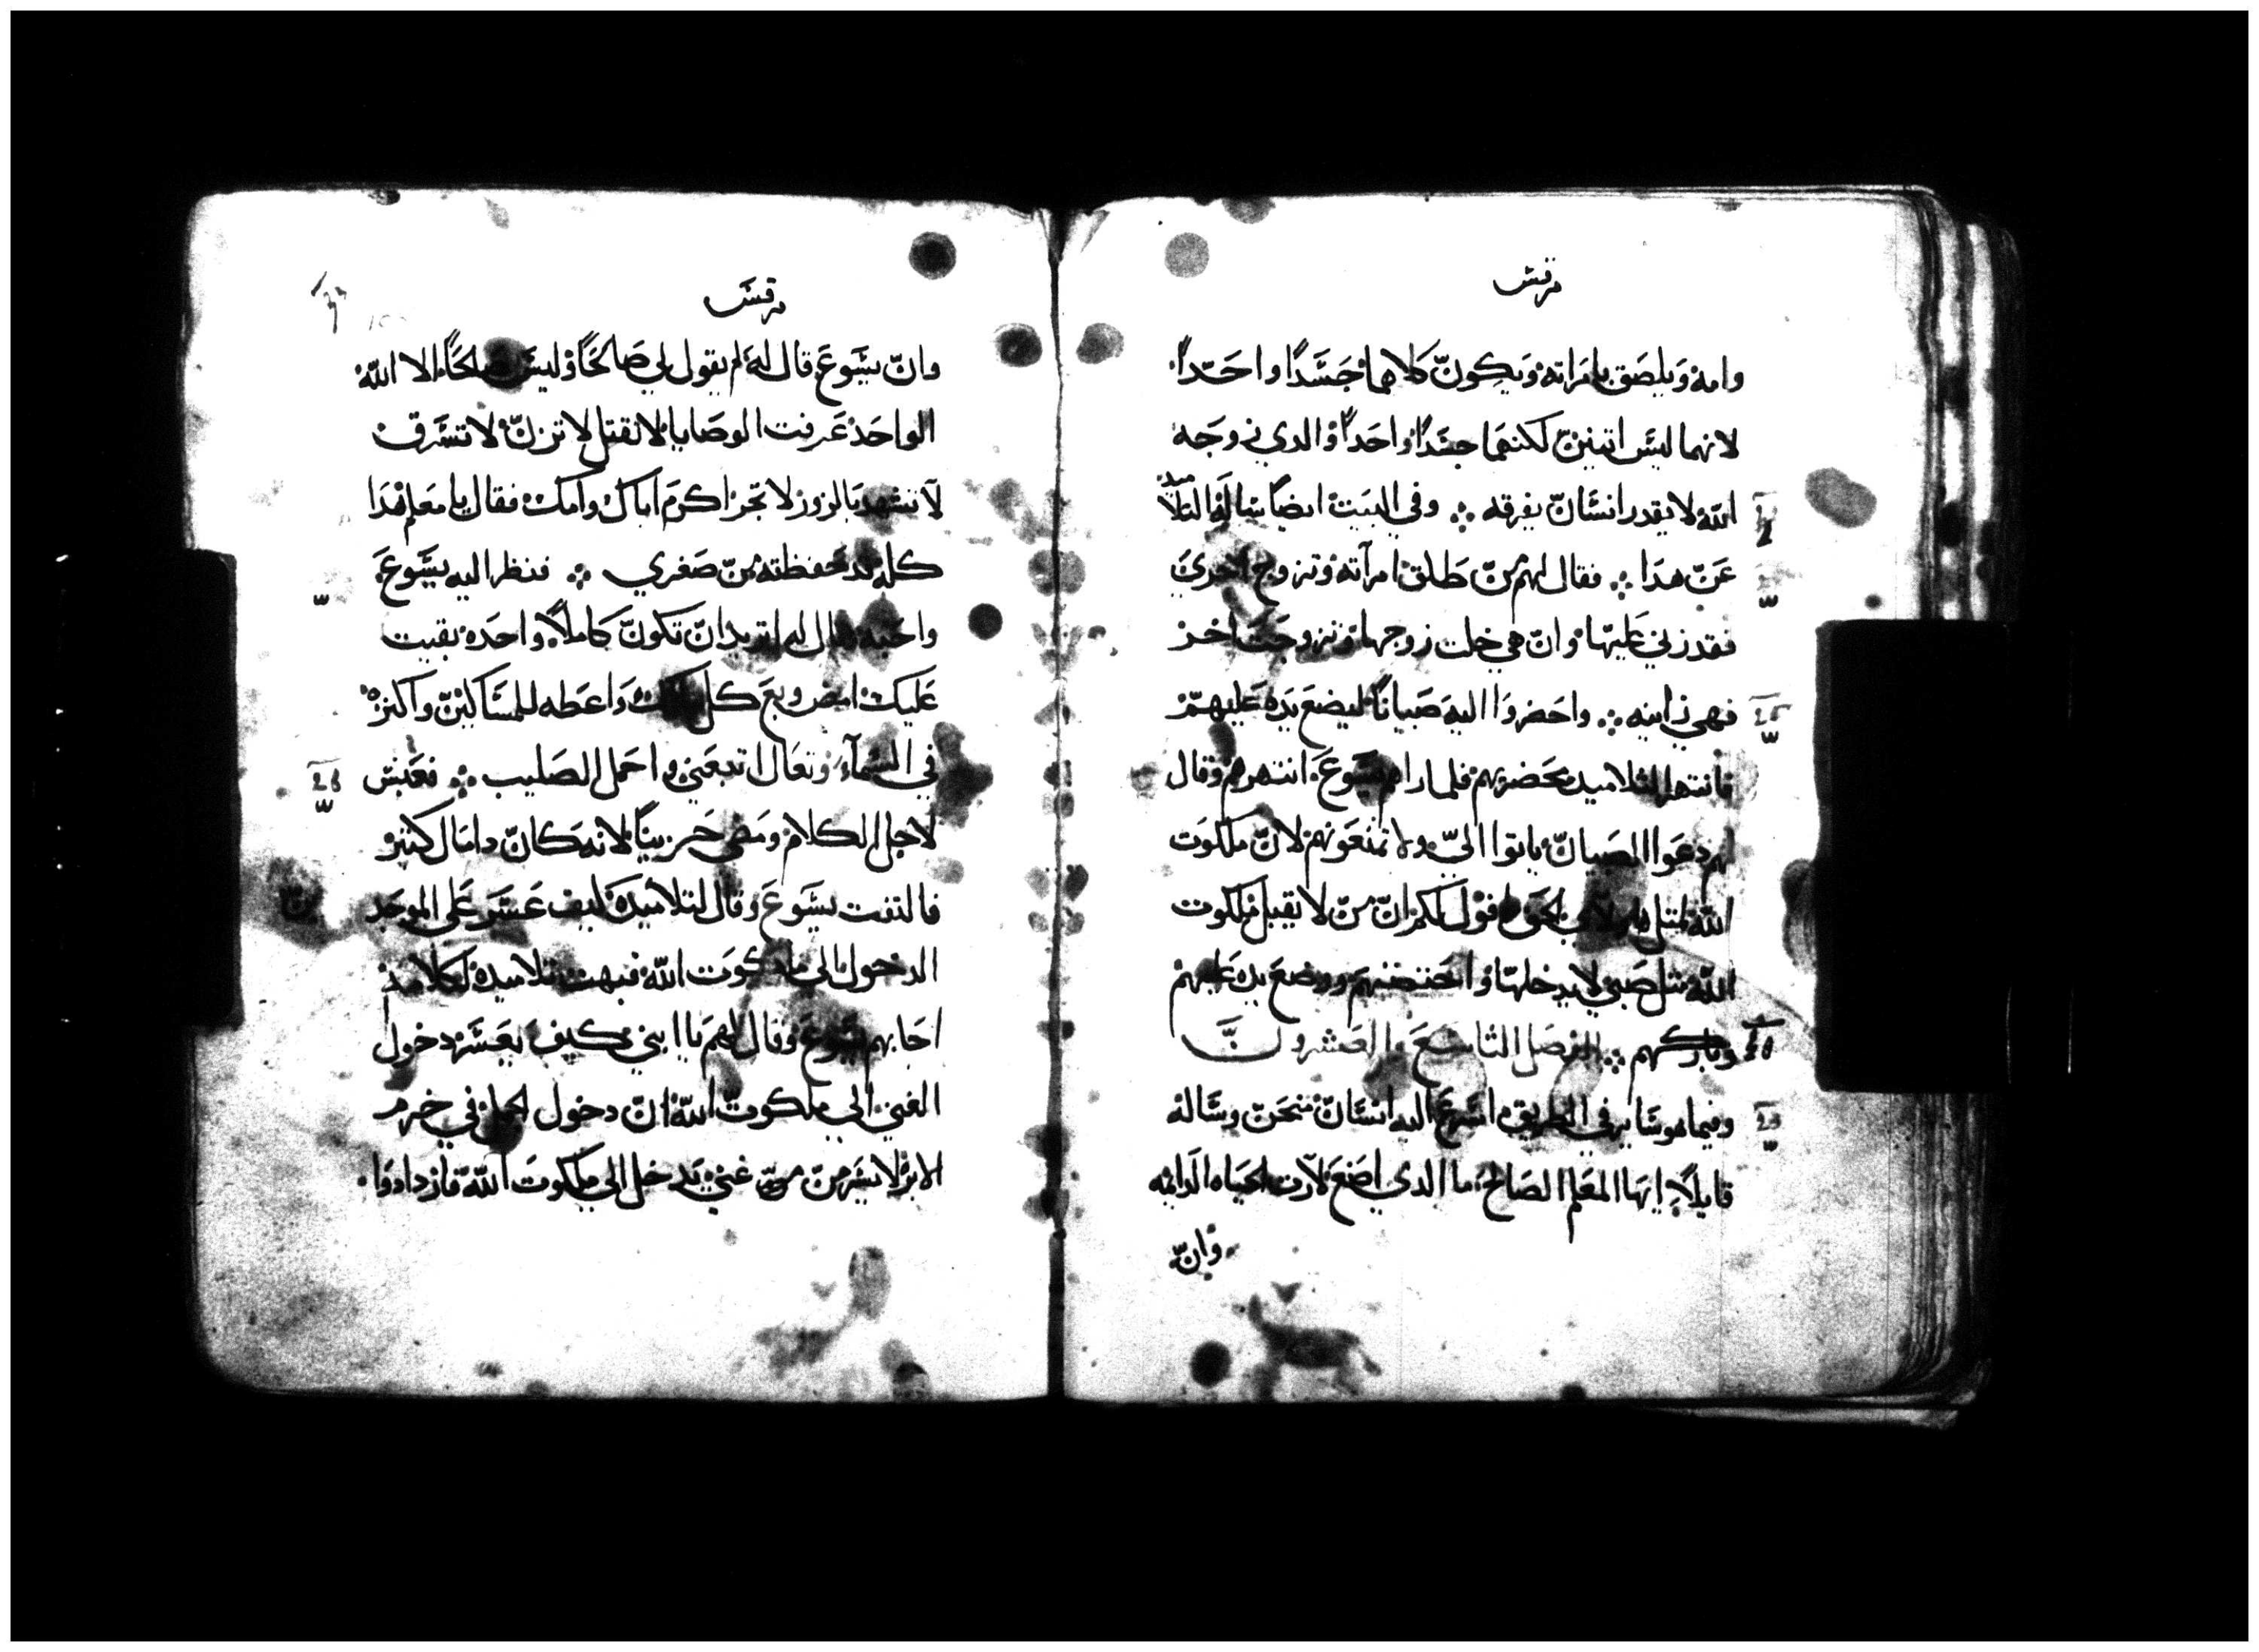 مرقس
وامه ويلصق بامراته ويكون كلاهما جسدا واحدا
لانهما ليس اتنين لكنهما جسدا واحدا والدي زوجه
الله لا يقدر انسان يفرقه ۞ وفي البيت ايضا ساله التلاميد
عن هدا ۞ فقال لهم من طلق امرآته وتزوج اخري
فقد زني عليها وان هي خلت زوجها وتزوجت اخر
فهي زانيه ۞ واحضروا اليه صبيانا ليضع يده عليهم
فانتهر التلاميد محضريهم فلما راهم يسوع انتهرهم وقال
لهم دعوا الصبيان ياتوا الي ولا تمنعونهم لان ملكوت
الله لمتل هاولاي الحق اقول لكم ان من لا يقبل ملكوت
الله متل صبي لا يدخلها واحتضنهم ووضع يده عليهم
وباركهم ۞ الفصل التاسع والعشرون
وفيما هو ساير في الطريق اسرع اليه انسان منحن وساله
قايلا ايها المعلم الصالح ما الدي اصنع لارت الحياه الدايمه
وان
مرقس
وان يسوع قال له لم يقول لي صالحا وليس صالحا الا الله
الواحد عرفت الوصايا لا تقتل لا تزن لا تسرق
لا تشهد بالزور لا تجر اكرم اباك وامك فقال يا معلم هدا
كله قد حفظته من صغري ۞ فنظر اليه يسوع
واحبه وقال له اتريد ان تكون كاملا واحده بقيت
عليك امض وبع كل مالك واعطه للمساكين واكنزه
في السمآء وتعال اتبعني واحمل الصليب ۞ فعبس
لاجل الكلام ومضي حزينا لانه كان دا مال كتير
فالتفت يسوع وقال لتلاميده كيف عسر علي الموجد
الدخول الي ملكوت الله فبهت تلاميده لكلامه
اجابهم يسوع وقال لهم يا ابني كيف يعسر دخول
الغني الي ملكوت الله ان دخول الجمل في خرم
الابر لايسر من غني يدخل الي ملكوت الله فازدادوا